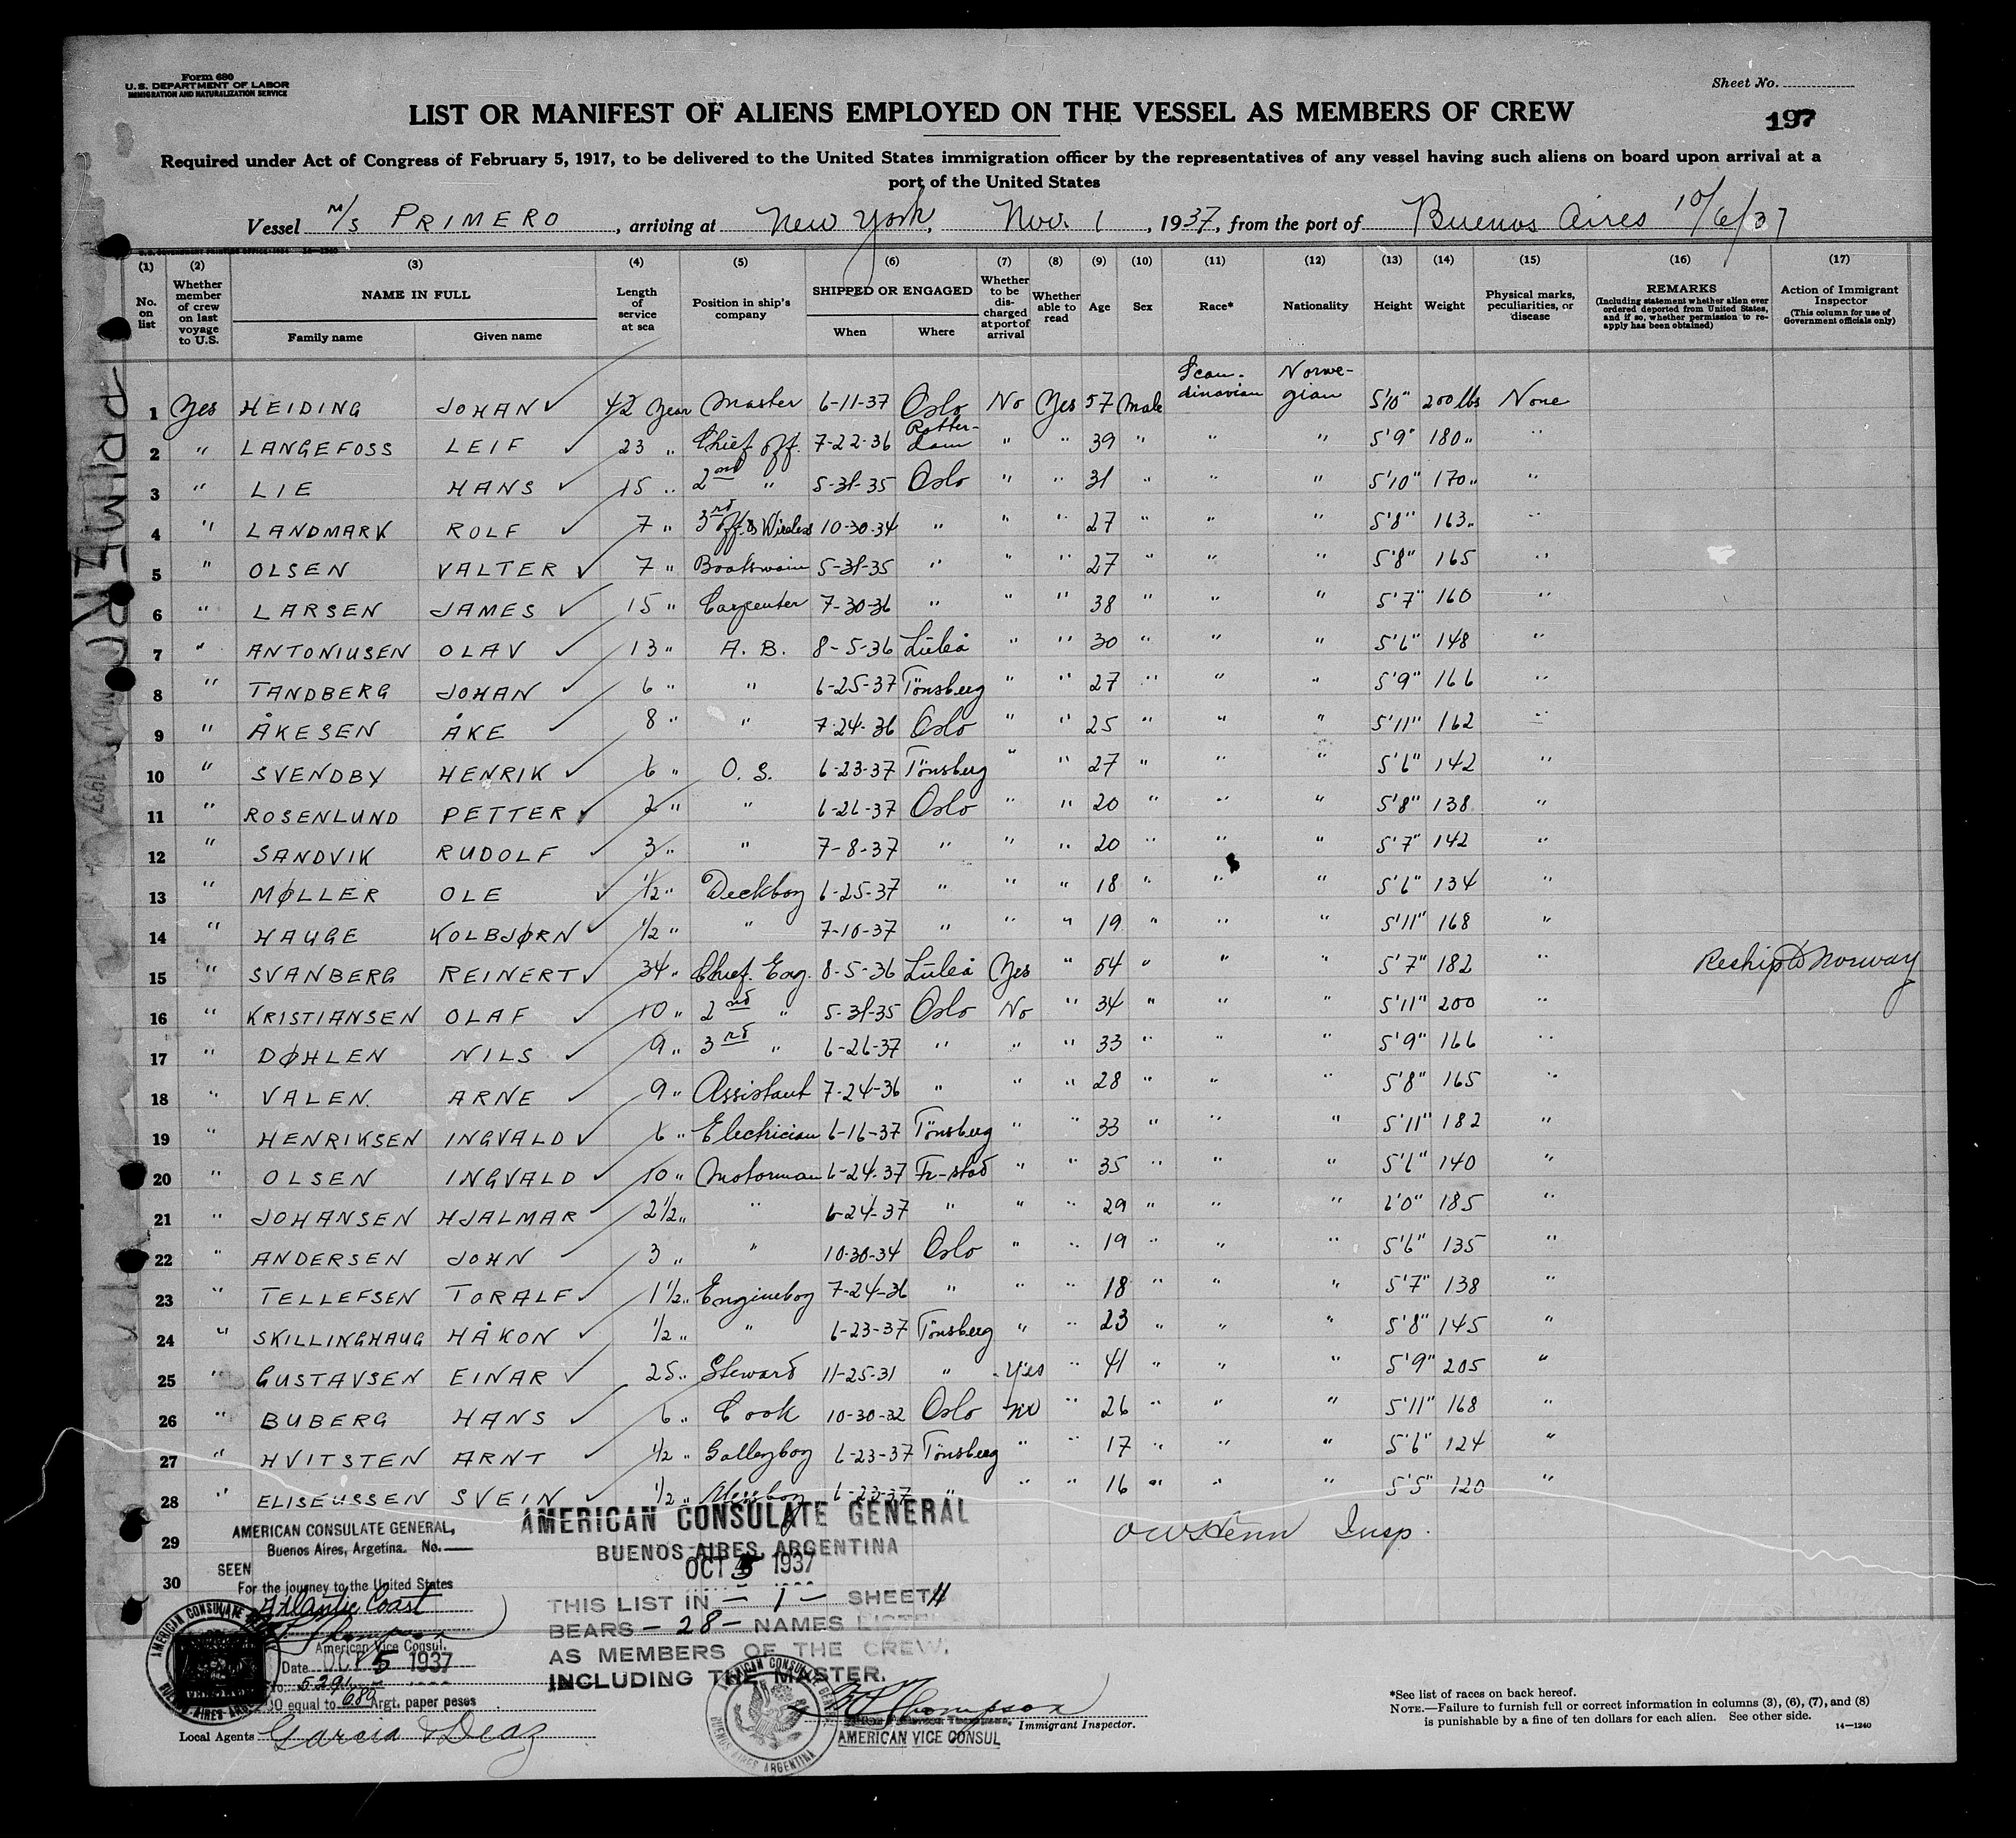 Form 680
U. S. DEPARTMENT OF LABOR
IMMIGRATION AND NATURALIZATION SERVICE
Sheet No.
LIST OR MANIFEST OF ALIENS EMPLOYED ON THE VESSEL AS MEMBERS OF CREW
197
Required under Act of Congress of February 5, 1917, to be delivered to the United States immigration officer by the representatives of any vessel having such aliens on board upon arrival at a
port of the United States
Vessel M/S PRIMERO, arriving at New York, Nov. 1, 1937, from the port of Buenos Aires 10/6/37
(1) (2) (3) (4) (5) (6) (7) (8) (9) (10) (11) (12) (13) (14) (15) (16) (17)
No. on list
Whether member of crew on last voyage to U.S.
NAME IN FULL
Family name
Given name
Length of service at sea
Position in ship's company
SHIPPED OR ENGAGED
When
Where
Whether to be discharged at port of arrival
Whether able to read
Age
Sex
Race*
Nationality
Height
Weight
Physical marks, peculiarities, or disease
REMARKS
(Including statement whether alien ever ordered deported from United States, and if so, whether permission to reapply has been obtained)
Action of Immigrant Inspector
(This column for use of Government officials only)
1 Yes HEIDING JOHAN 42 Year Master 6-11-37 Oslo No Yes 57 Male Scandinavian Norwegian 5'10" 200 lbs None
2 " LANGEFOSS LEIF 23 " Chief Off. 7-22-36 Rotterdam " " 39 " " " 5'9" 180 " "
3 " LIE HANS 15 " 2nd " 5-31-35 Oslo " " 31 " " " 5'10" 170 " "
4 " LANDMARK ROLF 7 " 3rd Off. & Wireless 10-30-34 " " " 27 " " " 5'8" 163 " "
5 " OLSEN VALTER 7 " Boatswain 5-31-35 " " " 27 " " " 5'8" 165 "
6 " LARSEN JAMES 15 " Carpenter 7-30-36 " " " 38 " " " 5'7" 160 "
7 " ANTONIUSEN OLAV 13 " A. B. 8-5-36 Luleå " " 30 " " " 5'6" 148 "
8 " TANDBERG JOHAN 6 " " 6-25-37 Tönsberg " " 27 " " " 5'9" 166 "
9 " ÅKESEN ÅKE 8 " " 7-24-36 Oslo " " 25 " " " 5'11" 162 "
10 " SVENDBY HENRIK 6 " O. S. 6-23-37 Tönsberg " " 27 " " " 5'6" 142 "
11 " ROSENLUND PETTER 2 " " 6-26-37 Oslo " " 20 " " " 5'8" 138 "
12 " SANDVIK RUDOLF 3 " " 7-8-37 " " " 20 " " " 5'7" 142 "
13 " MØLLER OLE 1/2 " Deckboy 6-25-37 " " " 18 " " " 5'6" 134 "
14 " HAUGE KOLBJØRN 1/2 " " 7-10-37 " " " 19 " " " 5'11" 168 "
15 " SVANBERG REINERT 34 " Chief. Eng. 8-5-36 Luleå Yes " 54 " " " 5'7" 182 " Reship to Norway
16 " KRISTIANSEN OLAF 10 " 2nd " 5-31-35 Oslo No " 34 " " " 5'11" 200 "
17 " DØHLEN NILS 9 " 3rd " 6-26-37 " " " 33 " " " 5'9" 166 "
18 " VALEN ARNE 9 " Assistant 7-24-36 " " " 28 " " " 5'8" 165 "
19 " HENRIKSEN INGVALD 6 " Electrician 6-16-37 Tönsberg " " 33 " " " 5'11" 182 "
20 " OLSEN INGVALD 10 " Motorman 6-24-37 Fr-stad " " 35 " " " 5'6" 140 "
21 " JOHANSEN HJALMAR 2 1/2 " " 6-24-37 " " " 29 " " " 6'0" 185 "
22 " ANDERSEN JOHN 3 " " 10-30-34 Oslo " " 19 " " " 5'6" 135 "
23 " TELLEFSEN TORALF 1 1/2 " Engineboy 7-24-36 " " " 18 " " " 5'7" 138 "
24 " SKILLINGHAUG HÅKON 1/2 " " 6-23-37 Tönsberg " " 23 " " " 5'8" 145 "
25 " GUSTAVSEN EINAR 25 " Steward 11-25-31 " Yes " 41 " " " 5'9" 205 "
26 " BUBERG HANS 6 " Cook 10-30-32 Oslo No " 26 " " " 5'11" 168 "
27 " HVITSTEN ARNT 1/2 " Galleyboy 6-23-37 Tönsberg " " 17 " " " 5'6" 124 "
28 " ELISEUSSEN SVEIN 1/2 " Messboy 6-23-37 " " " 16 " " " 5'5" 120 "
29
30
PRIMERO
NOV 1 1937
Insp.
AMERICAN CONSULATE GENERAL,
Buenos Aires, Argetina. No.
SEEN
For the journey to the United States
Atlantic Coast
Thompson
American Vice Consul.
Date OCT 5 1937
No. 5291
equal to 6.80 Argt. paper pesos
Local Agents Garcia & Diaz
AMERICAN CONSULATE GENERAL
BUENOS AIRES, ARGENTINA
OCT 5 1937
THIS LIST IN - 1 - SHEET
BEARS - 28 - NAMES LISTED
AS MEMBERS OF THE CREW.
INCLUDING THE MASTER.
AMERICAN CONSULATE GENERAL
BUENOS AIRES ARGENTINA
Thompson
Immigrant Inspector.
AMERICAN VICE CONSUL
*See list of races on back hereof.
NOTE.—Failure to furnish full or correct information in columns (3), (6), (7), and (8)
is punishable by a fine of ten dollars for each alien. See other side.
14—1240